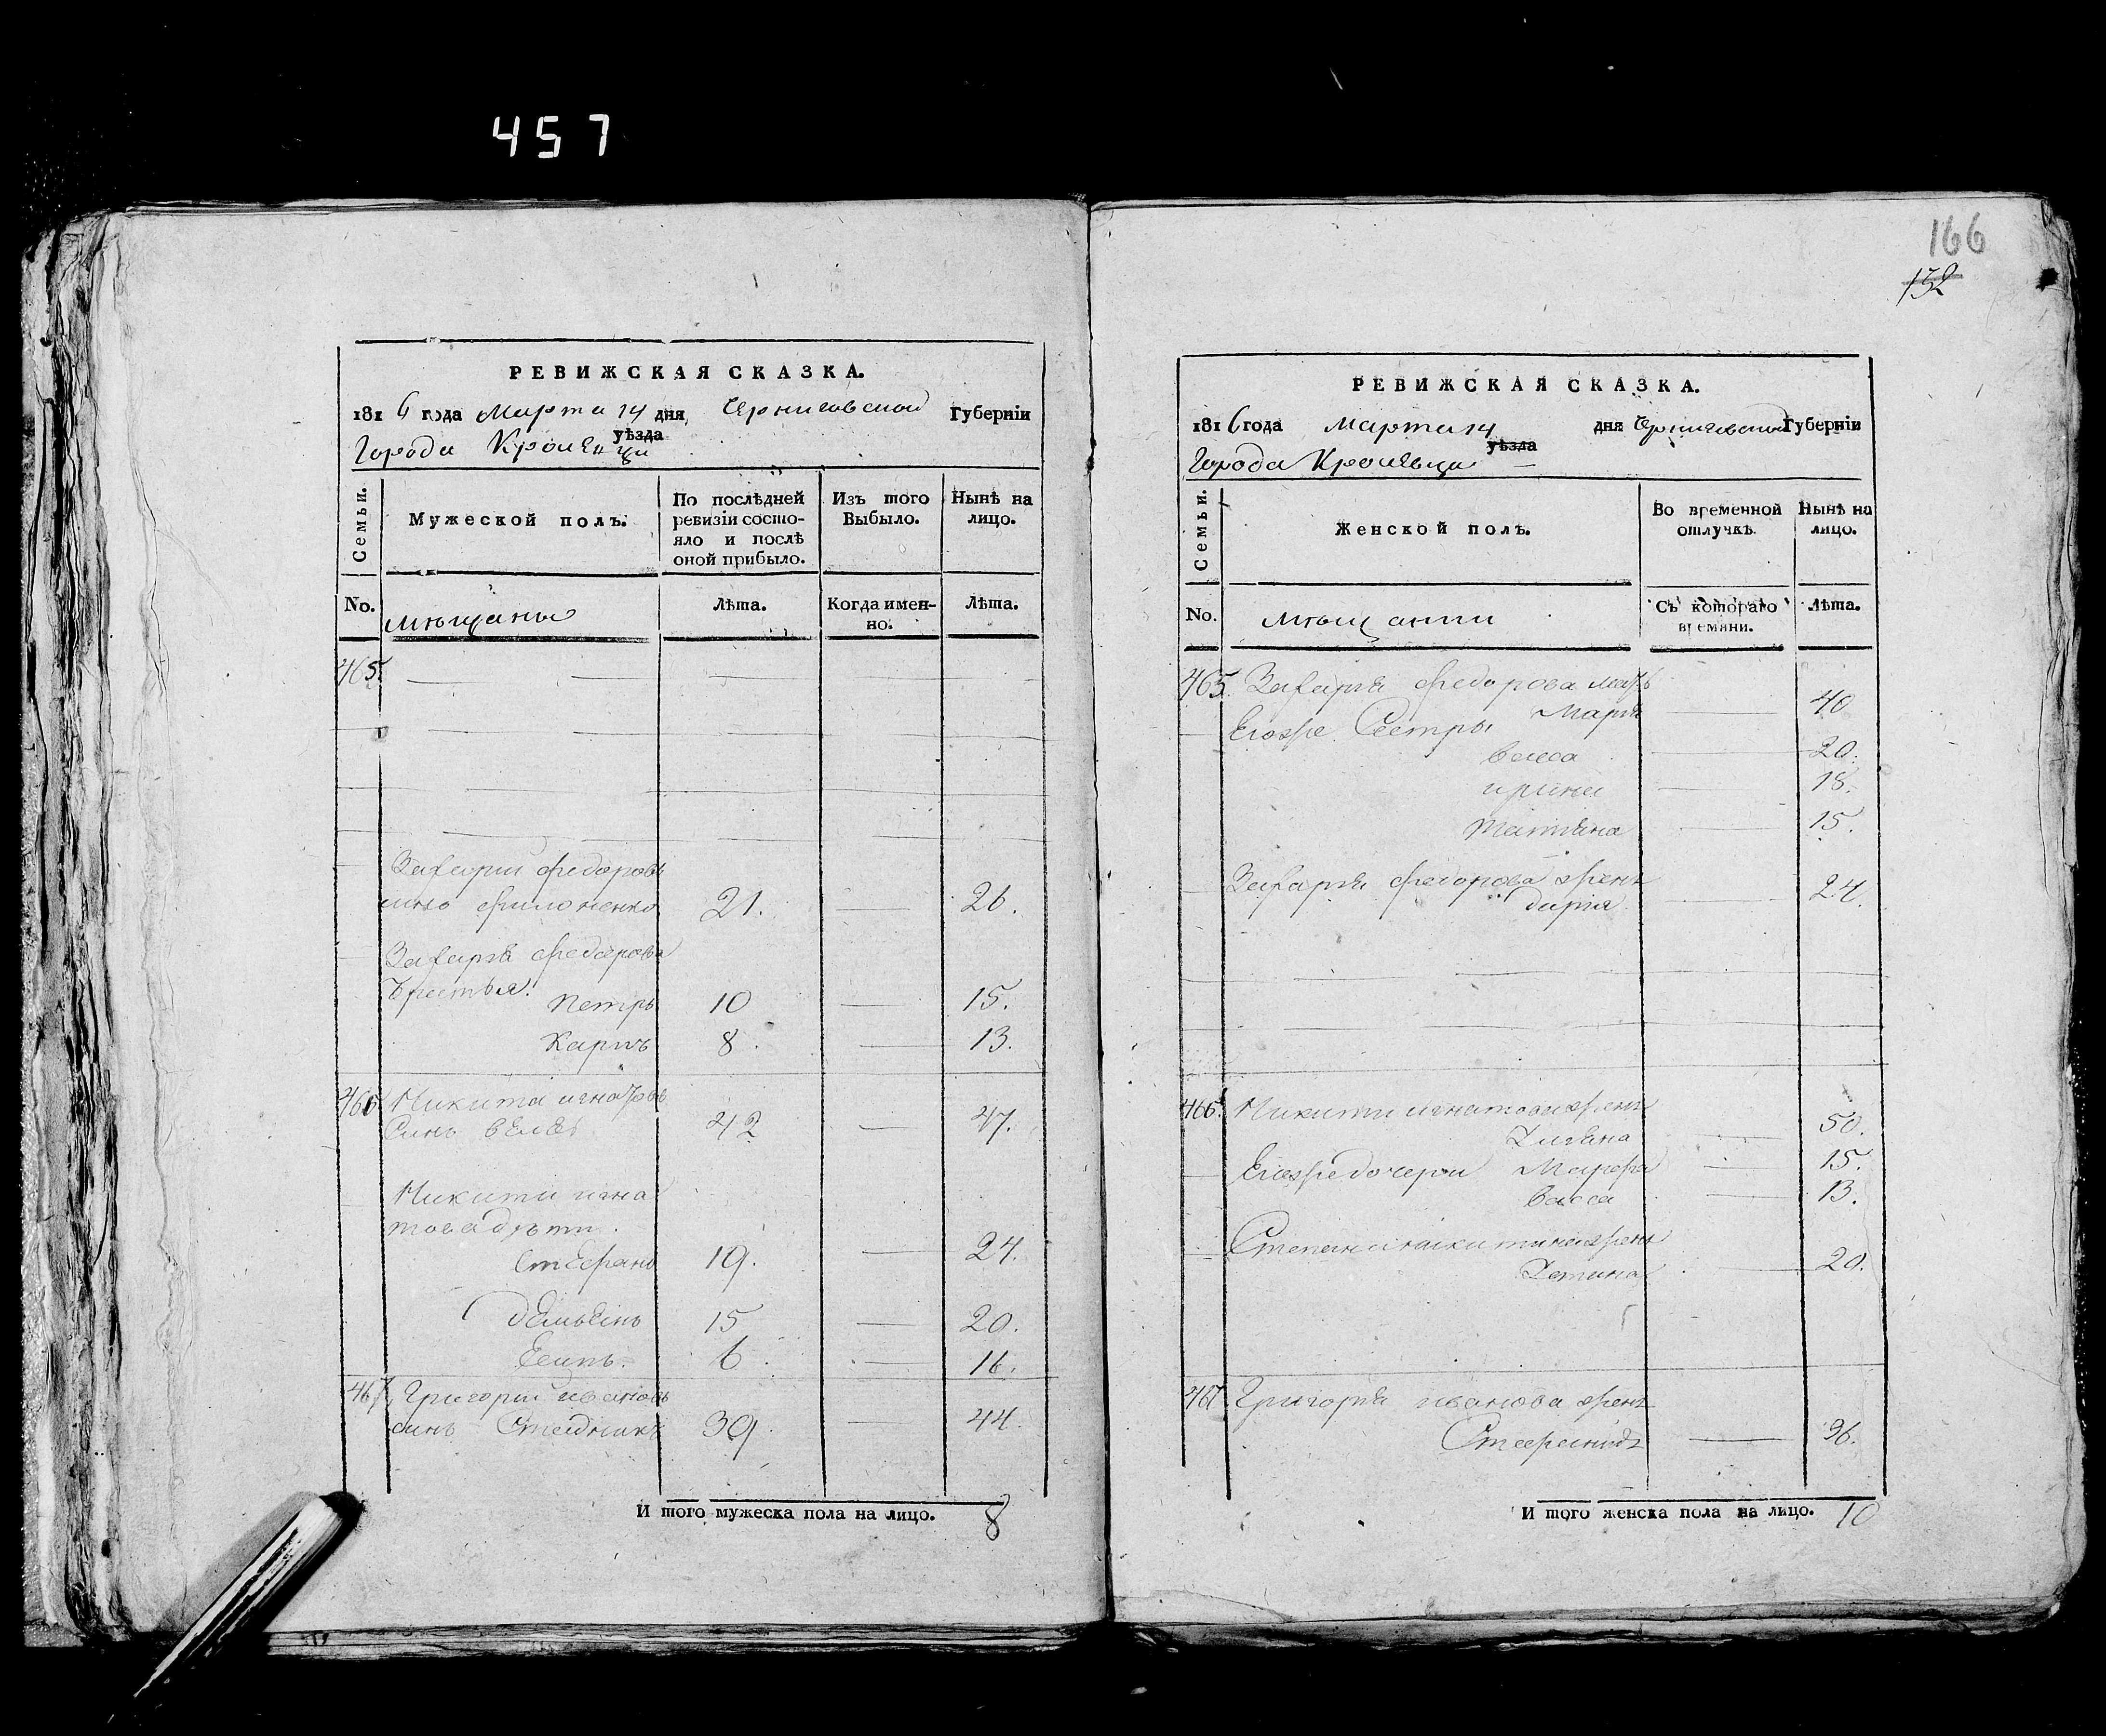 457
166
132
РЕВИЖСКАЯ СКАЗКА.
1816 года Марта 14 дня Черниговской Губерніи
уѣзда
Города Кролевца
Семьи.
Мужеской полъ.
По послѣдней ревизіи состояло и послѣ оной прибыло.
Изъ того Выбыло.
Нынѣ на лицо.
No.
мѣщаны
Лѣта.
Когда именно.
Лѣта.
465.
Захарии федоровъ
синъ филоненко 21. 26.
Захарія федорова
братья.
Петръ 10 15.
Карпъ 8. 13.
466 Никита игнатовъ
Синъ 42 47.
Никити игна
това дѣти.
Стефанъ 19. 24.
15 20.
Есипъ. 6. 16.
467, Григорий ивановъ
синъ 39. 44.
И того мужеска пола на лицо. 8
РЕВИЖСКАЯ СКАЗКА.
1816 года Марта 14 дня Черниговской Губерніи
уѣзда
Города Кролевца
Семьи.
Женской полъ.
Во временной отлучкѣ.
Нынѣ на лицо.
No.
мѣщанки
Съ котораго времяни.
Лѣта.
465. Захарія федорова мать
Марія 40
Егожъ Сестры
васса 20.
ирина 18.
татіяна 15.
Захарія федорова жена
дарія 24.
466. Никити игнатова жена
50.
Егожъ дочери Марфа 15.
васса 13.
Степана никитина жена
20.
467. Григорія иванова жена
Стефанида 36.
И того женска пола на лицо. 10